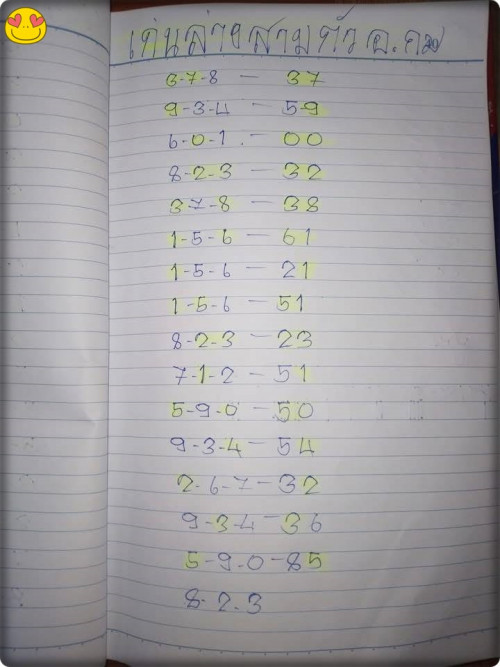 เด่นล่างสามตัว อ.กม
3-7-8 — 37
9-3-4 — 59
6-0-1 — 00
8-2-3 — 32
3-7-8 — 38
1-5-6 — 61
1-5-6 — 21
1-5-6 — 51
8-2-3 — 23
7-1-2 — 51
5-9-0 — 50
9-3-4 — 54
2-6-7 — 32
9-3-4 — 36
5-9-0 — 85
8-2-3